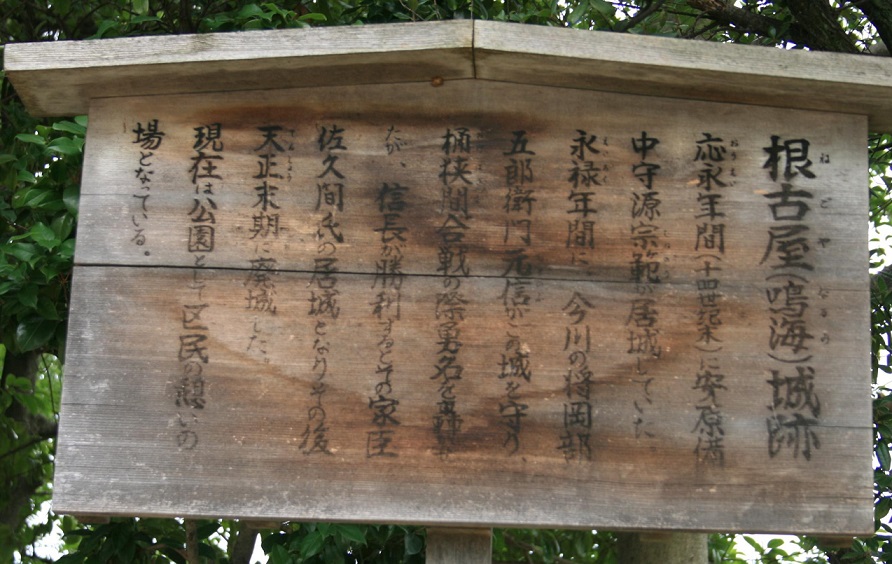 根古屋(鳴海)城跡
応永年間(十四世紀末)に安原備
中守源宗範が居城していた。
永禄年間に、今川の将岡部
五郎衛門元信がこの城を守り、
桶狭間合戦の際勇名を轟せ
たが、信長が勝利するとその家臣
佐久間氏の居城となりその後
天正末期に廃城した。
現在は公園として区民の憩いの
場となっている。